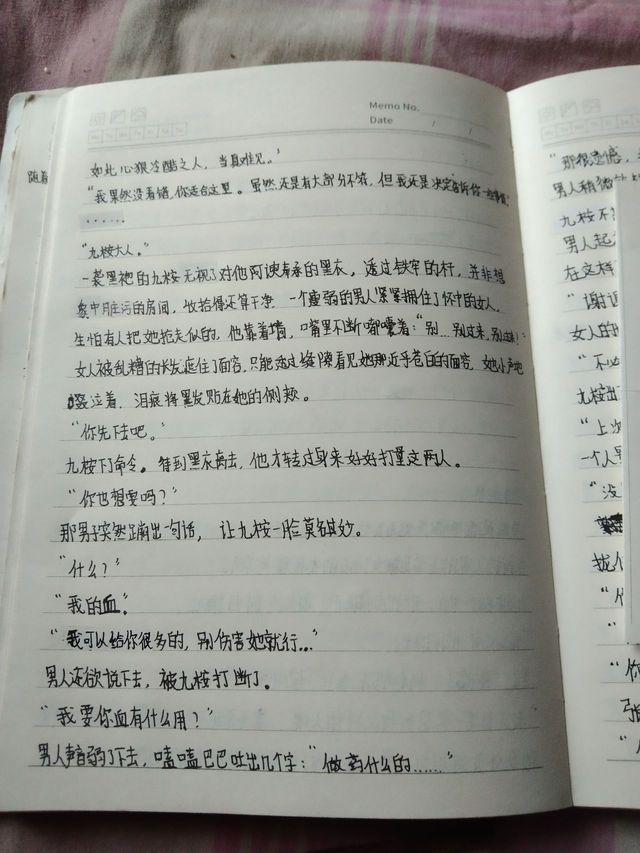 Memo No.
Date / /
如此心狠冷酷之人，当真难见。”
“我果然没看错，你适合这里。虽然还是有大部分不符，但我还是决定告诉你一些事情”
......
“九桉大人。”
一袭黑袍的九桉无视了对他阿谀奉承的黑衣，透过铁牢的杆，并非想
象中脏污的房间，收拾得还算干净，一个瘦弱的男人紧紧拥住了怀中的女人，
生怕有人把她抢走似的，他靠着墙，嘴里不断嘟囔着：“别...别过来，别过来！”
女人被乱糟的长发遮住了面容，只能透过缝隙看见她那近乎苍白的面容，她小声地
啜泣着，泪痕将黑发贴在她的侧颊。
“你先下去吧。”
九桉下了命令。等到黑衣离去，他才转过身来好好打量这两人。
“你也想要吗？”
那男子突然蹦出一句话，让九桉一脸莫名其妙。
“什么？”
“我的血。”
“我可以给你很多的，别伤害她就行...”
男人还欲说下去，被九桉打断了。
“我要你血有什么用？”
男人声音弱了下去，嗑嗑巴巴吐出几个字：“做药什么的......”
随着
“那很遗憾，
男人稍微
九桉不
男人起
在这样
“谢谢
女人的
“不必
九桉出
“上次
一个人
“没
拢
“你